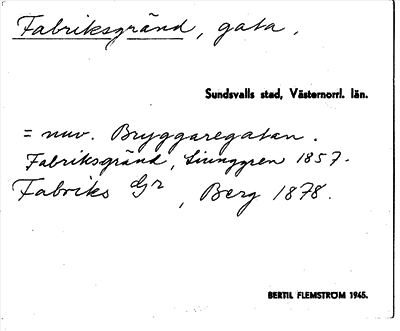 Fabriksgränd, gata.
Sundsvalls stad, Västernorrl. län.
= nuv. Bryggaregatan.
Fabriksgränd, Liunggren 1857.
Fabriks Gr, Berg 1878.
BERTIL FLEMSTRÖM 1945.